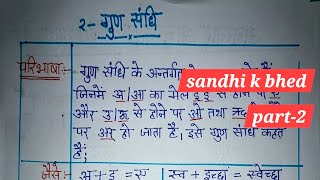 २- गुण संधि
परिभाषा:- गुण संधि के अन्तर्गत
जिनमें अ/आ का मेल इ/ई से होने पर ए
और उ/ऊ से होने पर ओ तथा ऋ
पर अर् हो जाता है, इसे गुण संधि कहते
हैं;
जैसे अ+इ = ए स्व + इच्छा = स्वेच्छा
sandhi k bhed
part-2